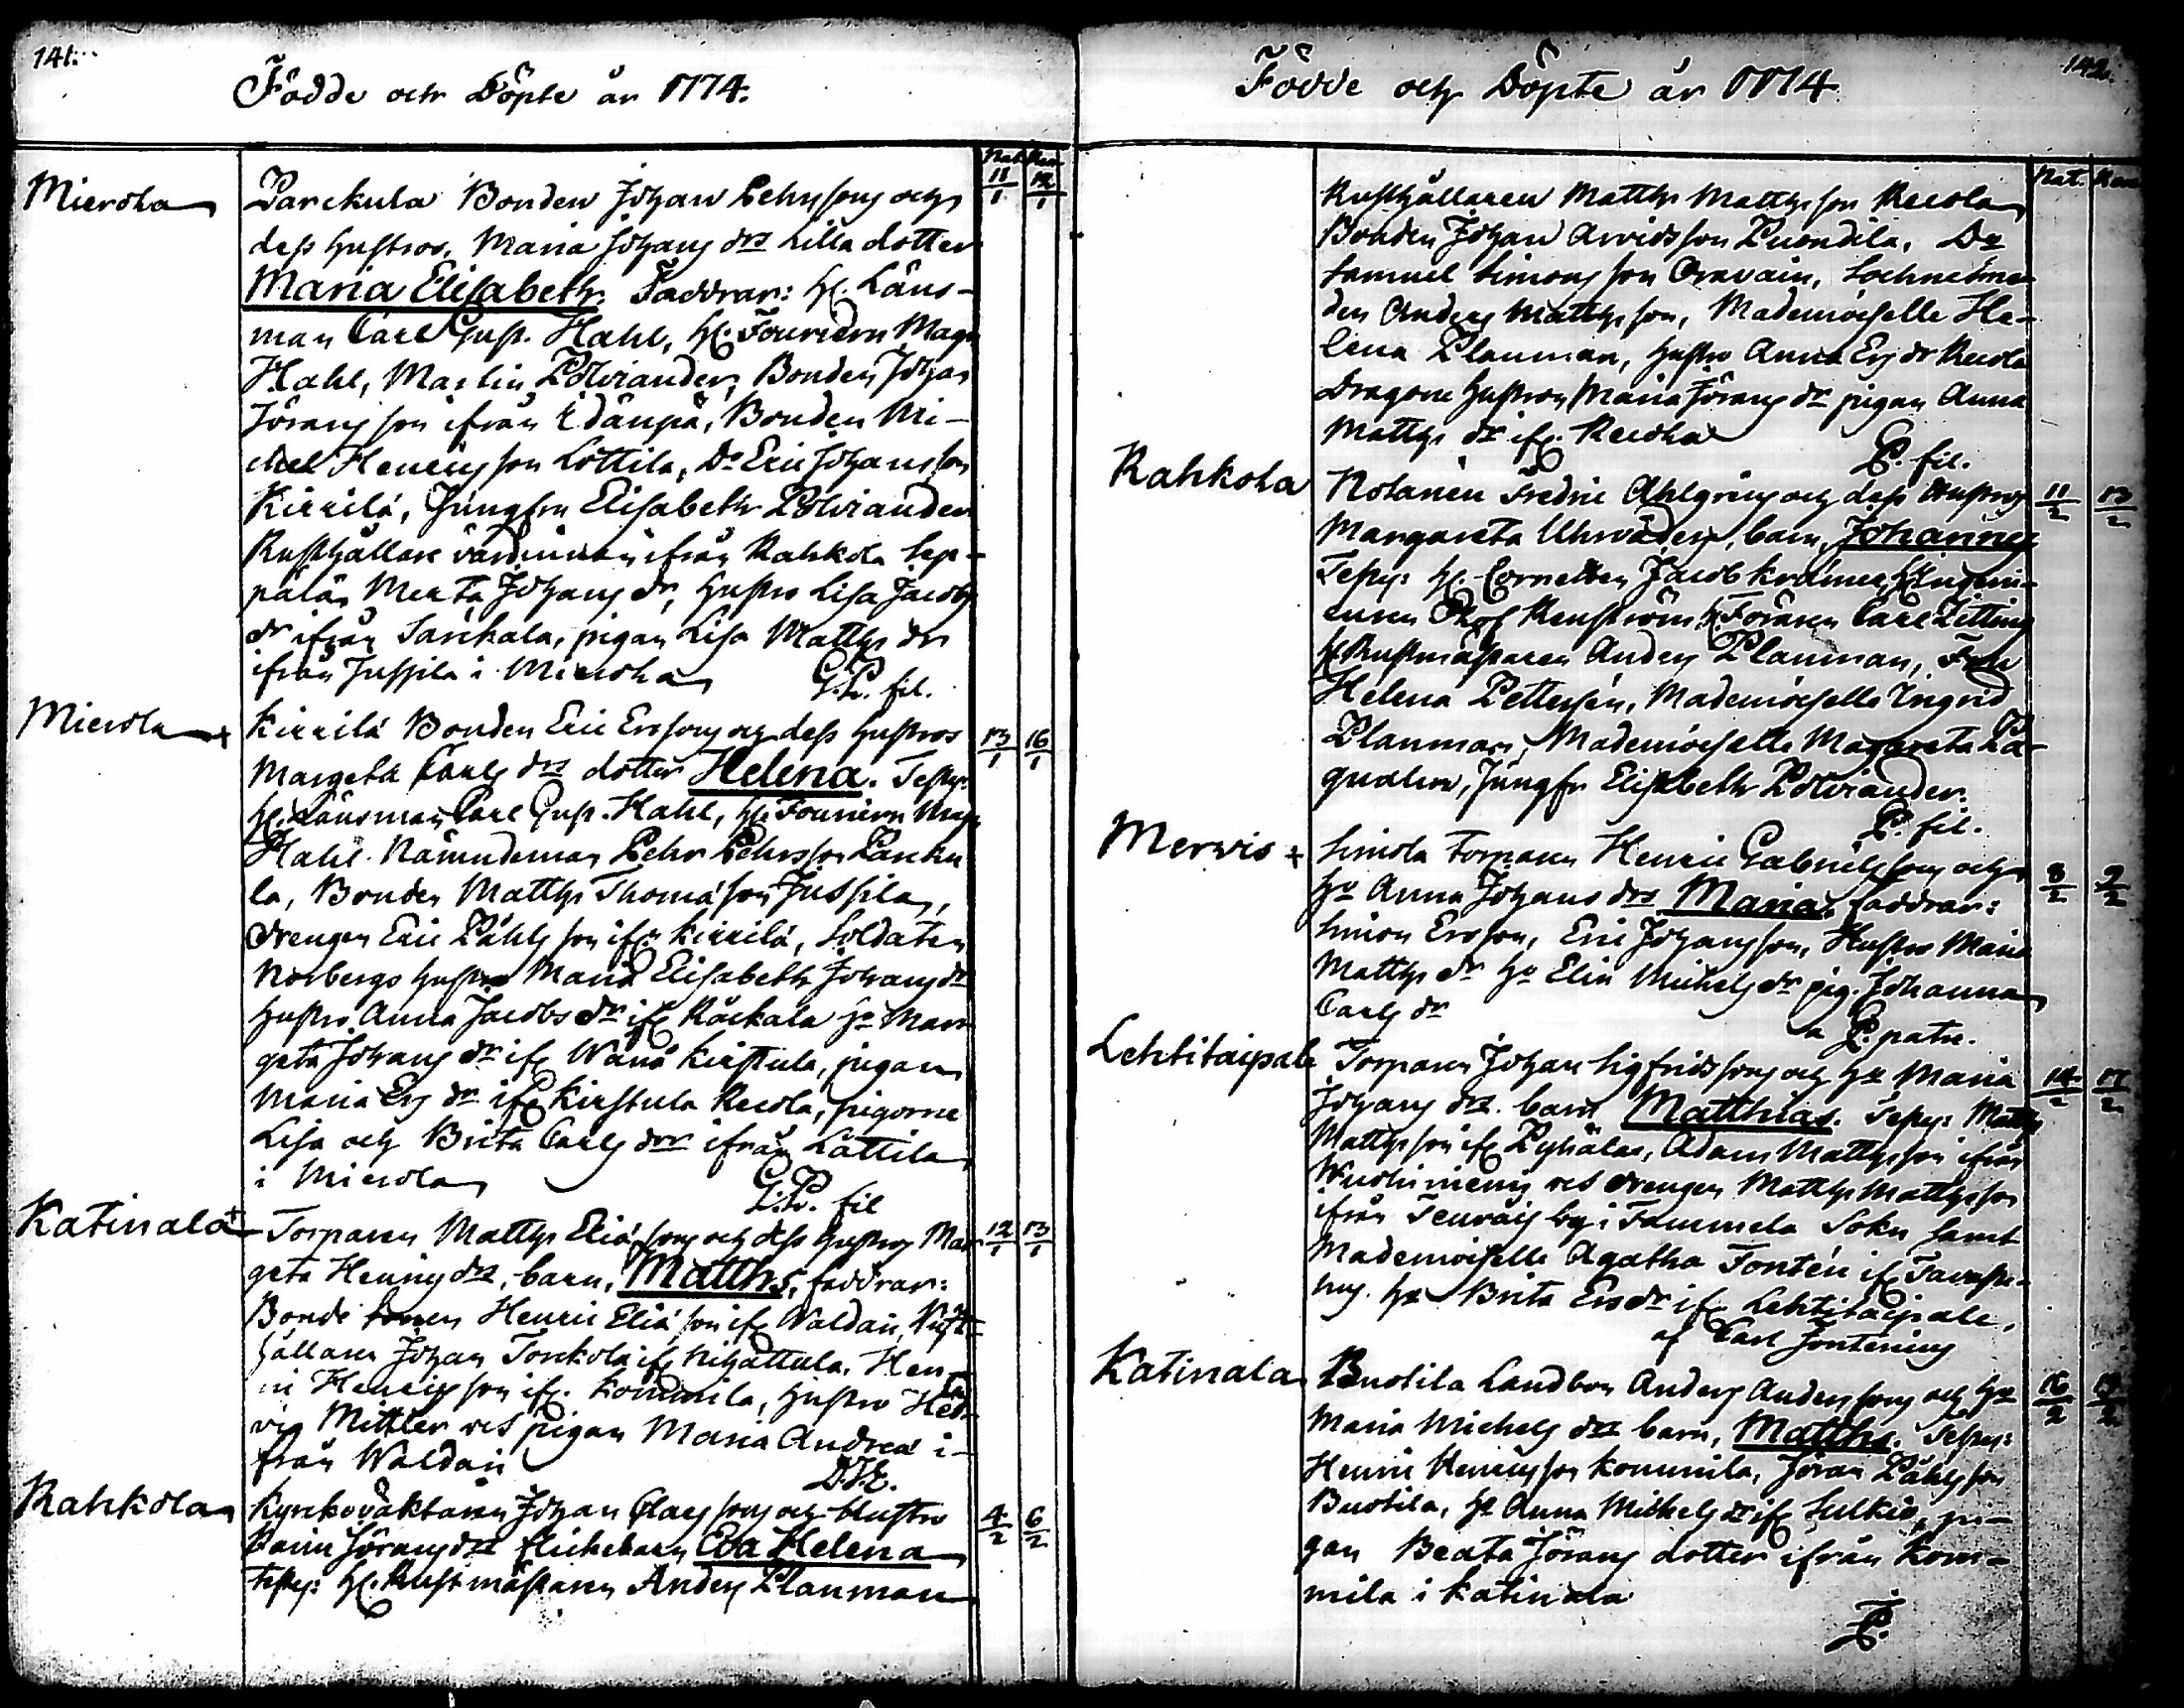 141.
Födde och Döpte år 1774.
Nat. Ren.
Mierola
Parckula Bonden Johan Pehrsons och
dess hustros, Maria Johans drs lilla dotter
11/1 12/1
Maria Elisabeth. Faddrar: H. Läns-
man Carl Gust. Hahl, H. Fouriern Magn
Hahl, Martin Polviander, Bonden Johan
Jöransson ifrån Idänpä, Bonden Mi-
chel Henricsson Lottila, Do Eric Johansson
Kirrilä, Jungfru Elisabeth Polviander
Rusthållare värdinnan ifrån Rahkola Sep-
pälä, Merta Johans dr, hustro Lisa Jacobs
dr ifrån Sarickala, pigan Lisa Matths dr
ifrån Jussila i Mierola
G.P. fil.
Mierola +
Kirrilä Bonden Eric Erssons och dess hustros
13/1 16/1
Margeta Carls drs dotter Helena. Testes:
H. Länsman Carl Gust. Hahl, H. Fouriern Magn
Hahl. Nämndeman Pehr Pehrsson Parcku
la, Bonden Matths Thomasson Jussila,
drengen Eric Påhlsson ifr. Kirrilä, Soldaten
Norbergs hustro Maria Elisabeth Johans dr
hustro Anna Jacobs dr ifr. Räckala ho Mar
geta Johans dr ifr. Wänä Kirstula, pigan
Maria Ers dr ifr. Kirstula Recola, pigorne
Lisa och Brita Carls drr ifrån Lattila
i Mierola
G.P. fil
Katinala +
Torparen Matths Eliæsons och dess hustros Mar
12/1 13/1
geta Henrics drs, barn, Matths, faddrar:
Bonde sonen Henric Eliæson ifr. Waldari, Rust-
hållaren Johan Torckola ifr. Nihattula, Hen
ric Henricsson ifr. Kommila, hustro Hed-
vig Mittler och pigan Maria Andreæ i-
från Waldari
Rahkola
Kyrckoväktaren Johan Claessons och hustro
4/2 6/2
Karin Jörans drs flickebarn Eva Helena
Testes: H. Rustmästaren Anders Planman
142.
Födde och Döpte år 1774
Nat. Ren
Rusthållaren Matths Matthsson Recola
Bonden Johan Arvidsson Puondila, Do
Samuel Simonsson Oravain, Sockneseme-
den Anders Matthsson, Mademoiselle He-
lena Planman, hustro Anna Ers dr Recola
Dragone hustron Maria Jörans dr pigan Anna
Matths dr ifr. Recola
P. fil.
Rahkola
Notarien Fredric Ahlgrens och dess hustros
11/2 13/2
Margareta Uhrväders, barn, Johannes
Testes: H. Cornetten Jacob Krämer, H. Ingeni-
euren Olof Renström H. Föraren Carl Zitting
H. Rustmästaren Anders Planman, Fru
Helena Pettersén, Mademoiselle Ingrid
Planman, Mademoiselle Margareta Pa-
qualin, Jungfr Elisabeth Polviander.
P. fil.
Merwis +
Simola Torparen Henric Gabrielssons och
8/2 9/2
ho Anna Johans drs Maria. faddrar:
Simon Ersson, Eric Johansson, Hustro Maria
Matths dr ho Elin Michels dr pig. Johanna
Carls dr
a P. patre.
Lehtitaipale
Torparen Johan Sigfridssons och ho Maria
14/2 17/2
Johans drs. barn Matthias. Testes: Matths
Matthsson ifr. Pyhälax, Adam Matthsson ifrån
Wuohiniemi och drengen Matths Matthsson
ifrån Teuro by i Tammela Sokn samt
Mademoiselle Agatha Fontén ifr. Tavaste-
hus. ho Brita Ers dr ifr. Lehtitaipale,
af Carl Jontenius
Katinala
Buotila Landbon Anders Anderssons och ho
16/2 19/2
Maria Michels drs barn, Matths. Testes:
Henric Henricsson Kommila, Jöran Påhlsson
Buotila, ho Anna Michels dr ifr. Sulkis, pi-
gan Beata Jörans dotter ifrån Kom-
mila i Katinala
P.